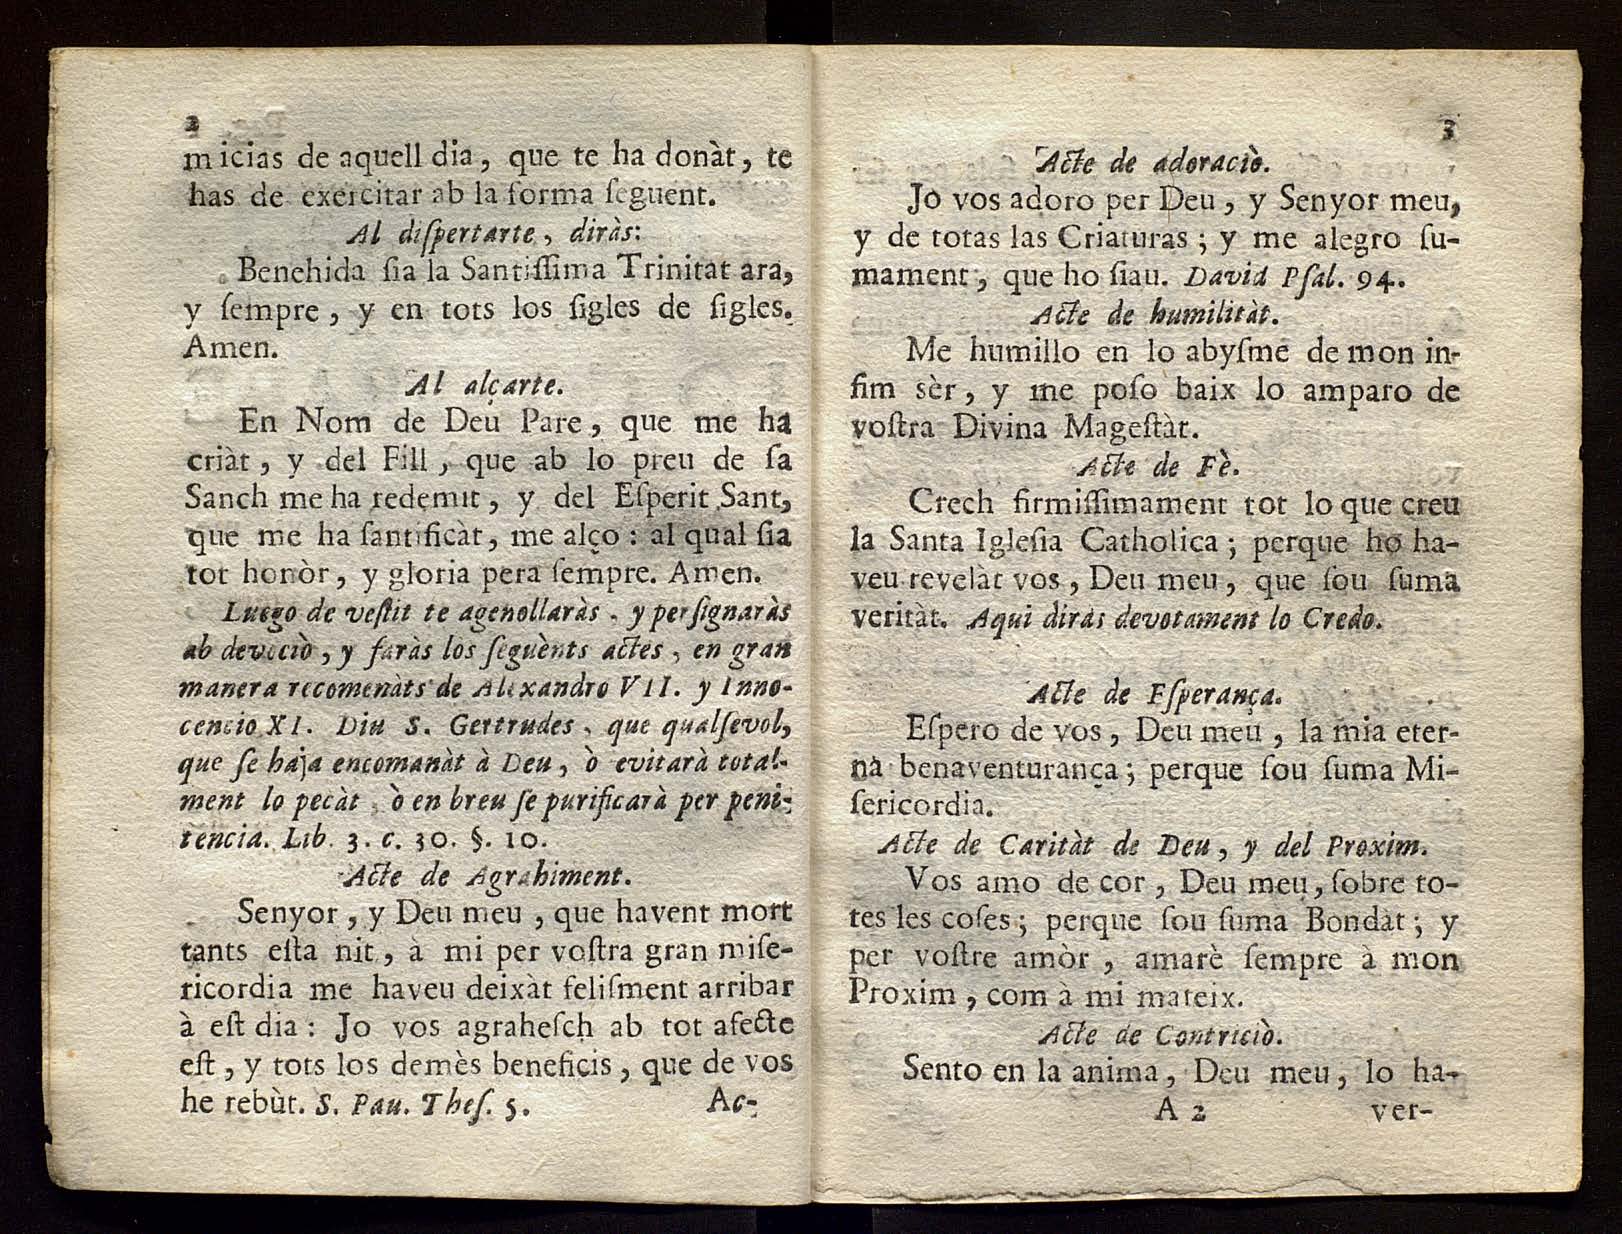 2
micias de aquell dia, que te ha donàt, te
has de exercitar ab la forma ſeguent.
Al diſpertarte, diràs:
Benehida ſia la Santiſſima Trinitat ara,
y ſempre, y en tots los ſigles de ſigles.
Amen.
Al alçarte.
En Nom de Deu Pare, que me ha
criàt, y del Fill, que ab lo preu de ſa
Sanch me ha redemit, y del Eſperit Sant,
que me ha ſantificàt, me alço: al qual ſia
tot honòr, y gloria pera ſempre. Amen.
Luego de veſtit te agenollaràs, y perſignaràs
ab devociò, y faràs los ſeguènts actes, en gran
manera recomenàts de Alexandro VII. y Inno-
cencio XI. Diu S. Gertrudes, que qualſevol,
que ſe haja encomanàt à Deu, ò evitarà total-
ment lo pecàt, ò en breu ſe purificarà per peni-
tencia. Lib. 3. c. 30. §. 10.
Acte de Agrahiment.
Senyor, y Deu meu, que havent mort
tants eſta nit, à mi per voſtra gran miſe-
ricordia me haveu deixàt feliſment arribar
à eſt dia: Jo vos agraheſch ab tot afecte
eſt, y tots los demès beneficis, que de vos
he rebùt. S. Pau. Theſ. 5.
Ac-
3
Acte de adoraciò.
Jo vos adoro per Deu, y Senyor meu,
y de totas las Criaturas; y me alegro ſu-
mament, que ho ſiau. David Pſal. 94.
Acte de humilitàt.
Me humillo en lo abyſme de mon in-
fim sèr, y me poſo baix lo amparo de
voſtra Divina Mageſtàt.
Acte de Fè.
Crech firmiſſimament tot lo que creu
la Santa Igleſia Catholica; perque ho ha-
veu revelàt vos, Deu meu, que ſou ſuma
veritàt. Aqui diràs devotament lo Credo.
Acte de Eſperança.
Eſpero de vos, Deu meu, la mia eter-
na benaventurança; perque ſou ſuma Mi-
ſericordia.
Acte de Caritàt de Deu, y del Proxim.
Vos amo de cor, Deu meu, ſobre to-
tes les coſes; perque ſou ſuma Bondàt; y
per voſtre amòr, amarè ſempre à mon
Proxim, com à mi mateix.
Acte de Contriciò.
Sento en la anima, Deu meu, lo ha-
A 2
ver-